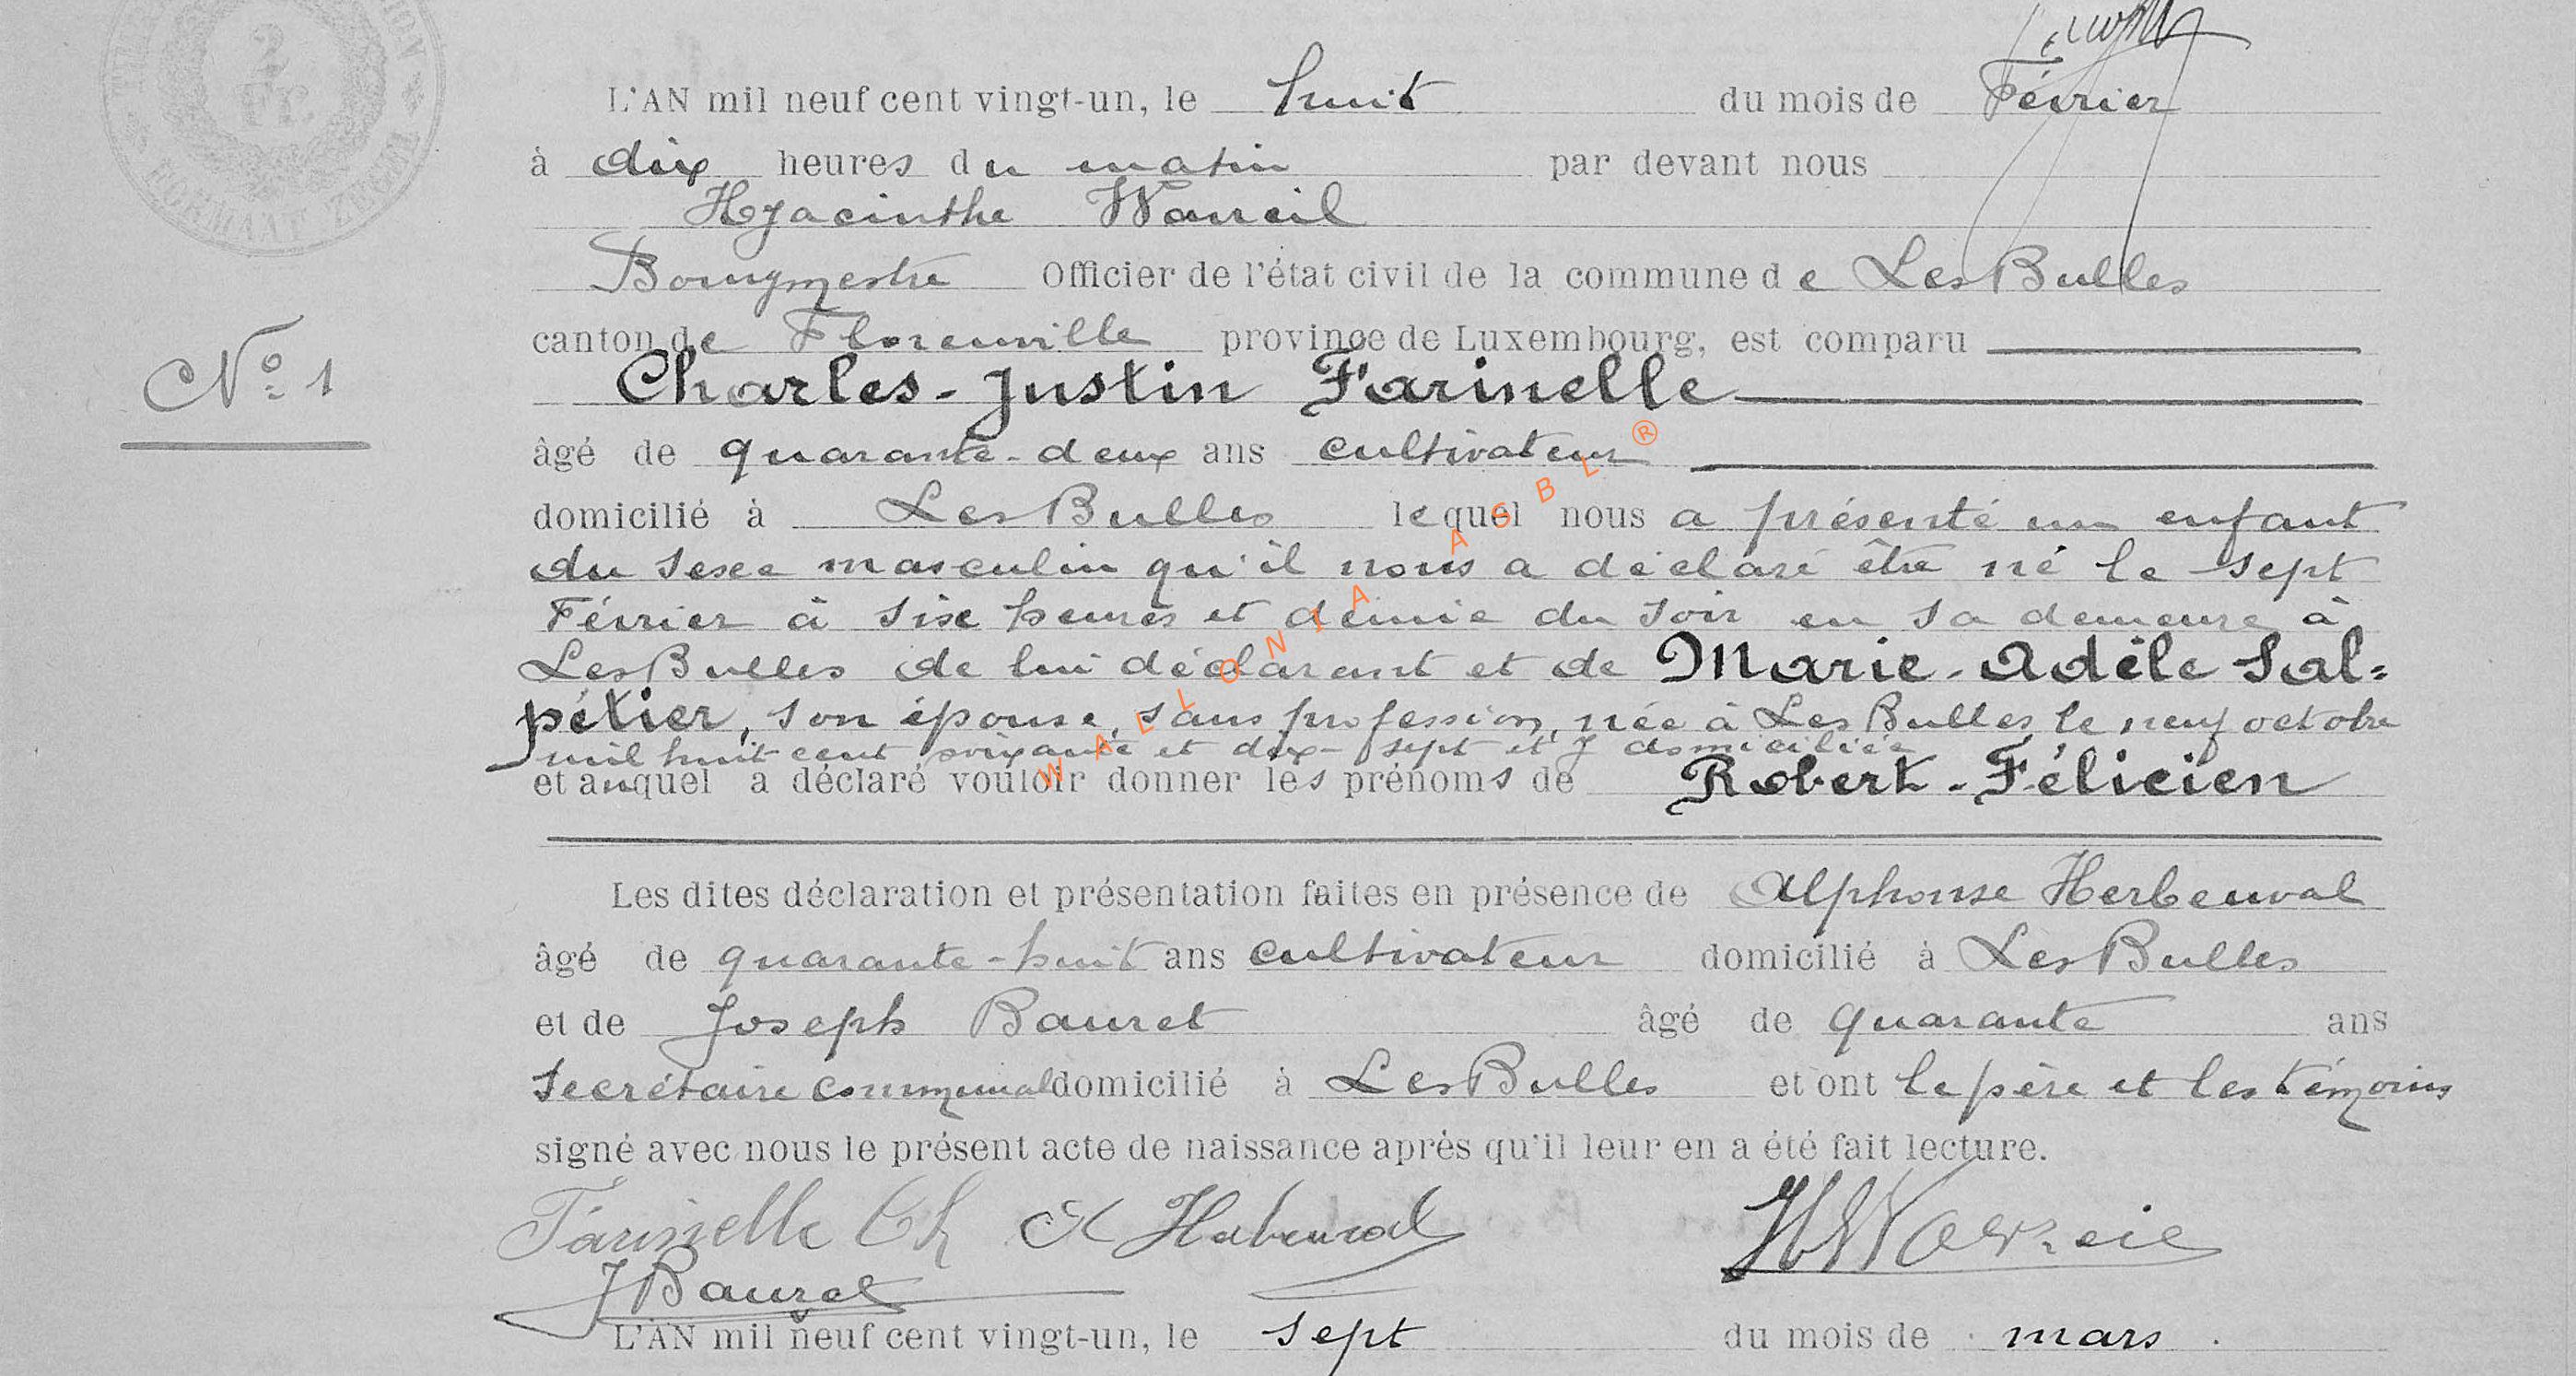 2
Fr.
L'AN mil neuf cent vingt-un, le huit du mois de Février
à dix heures du matin par devant nous
Hyacinthe Wavreil
Bourgmestre Officier de l'état civil de la commune de Les Bulles
canton de Florenville province de Luxembourg, est comparu
N° 1
Charles-Justin Farinelle
âgé de quarante-deux ans cultivateur
domicilié à Les Bulles lequel nous a présenté un enfant
du sexe masculin qu'il nous a déclaré être né le sept
Février à six heures et demie du soir en sa demeure à
Les Bulles de lui déclarant et de Marie-Adèle Sal=
pétier, son épouse, sans profession, née à Les Bulles, le neuf octobre
mil huit cent soixante et dix-sept et y domiciliée
et auquel a déclaré vouloir donner les prénoms de Robert-Félicien
Les dites déclaration et présentation faites en présence de Alphonse Herbeuval
âgé de quarante-huit ans cultivateur domicilié à Les Bulles
et de Joseph Bauret âgé de quarante ans
Secrétaire communal domicilié à Les Bulles et ont le père et les témoins
signé avec nous le présent acte de naissance après qu'il leur en a été fait lecture.
Farinelle Ch A Herbeuval H Wavreil
J Bauret
L'AN mil neuf cent vingt-un, le sept du mois de mars
WALLONIA ASBL ®